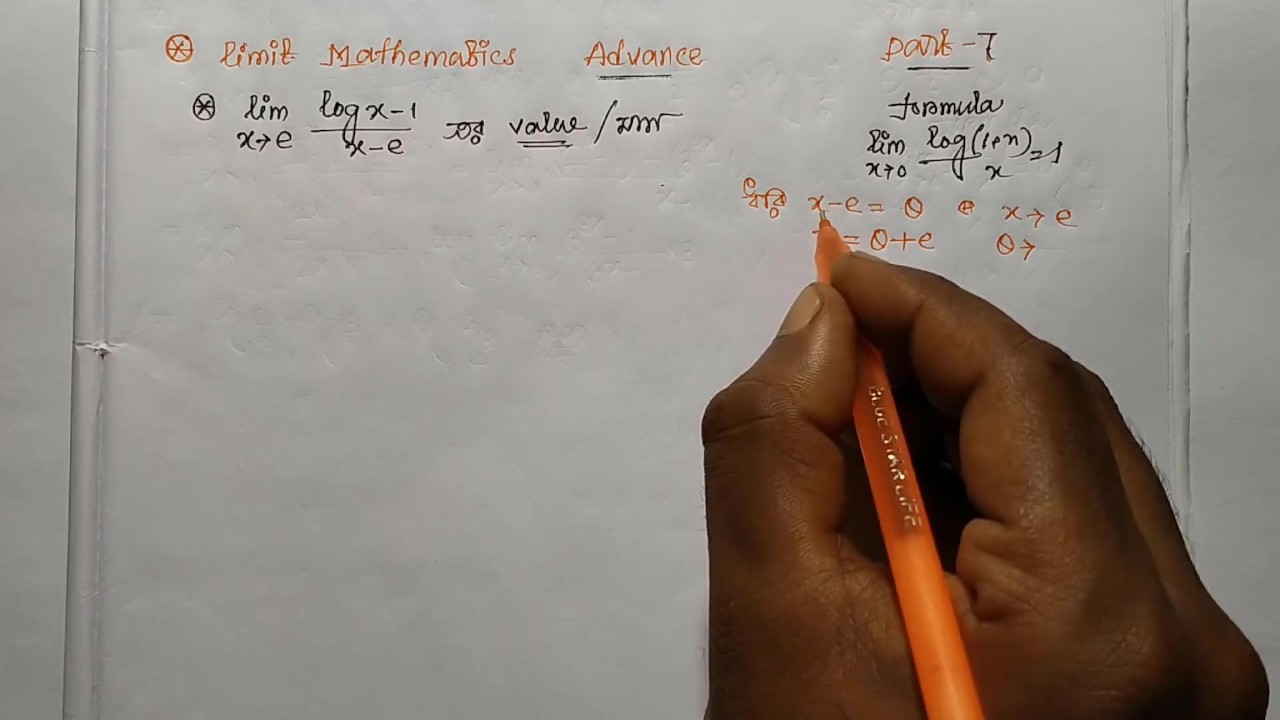 Limit Mathematics Advance Part-7
lim x→e (log x-1)/(x-e) এর value / মান
formula
lim x→0 log(1+x)/x = 1
ধরি x-e = θ x→e
= θ+e θ→
BLUE STAR LIFE